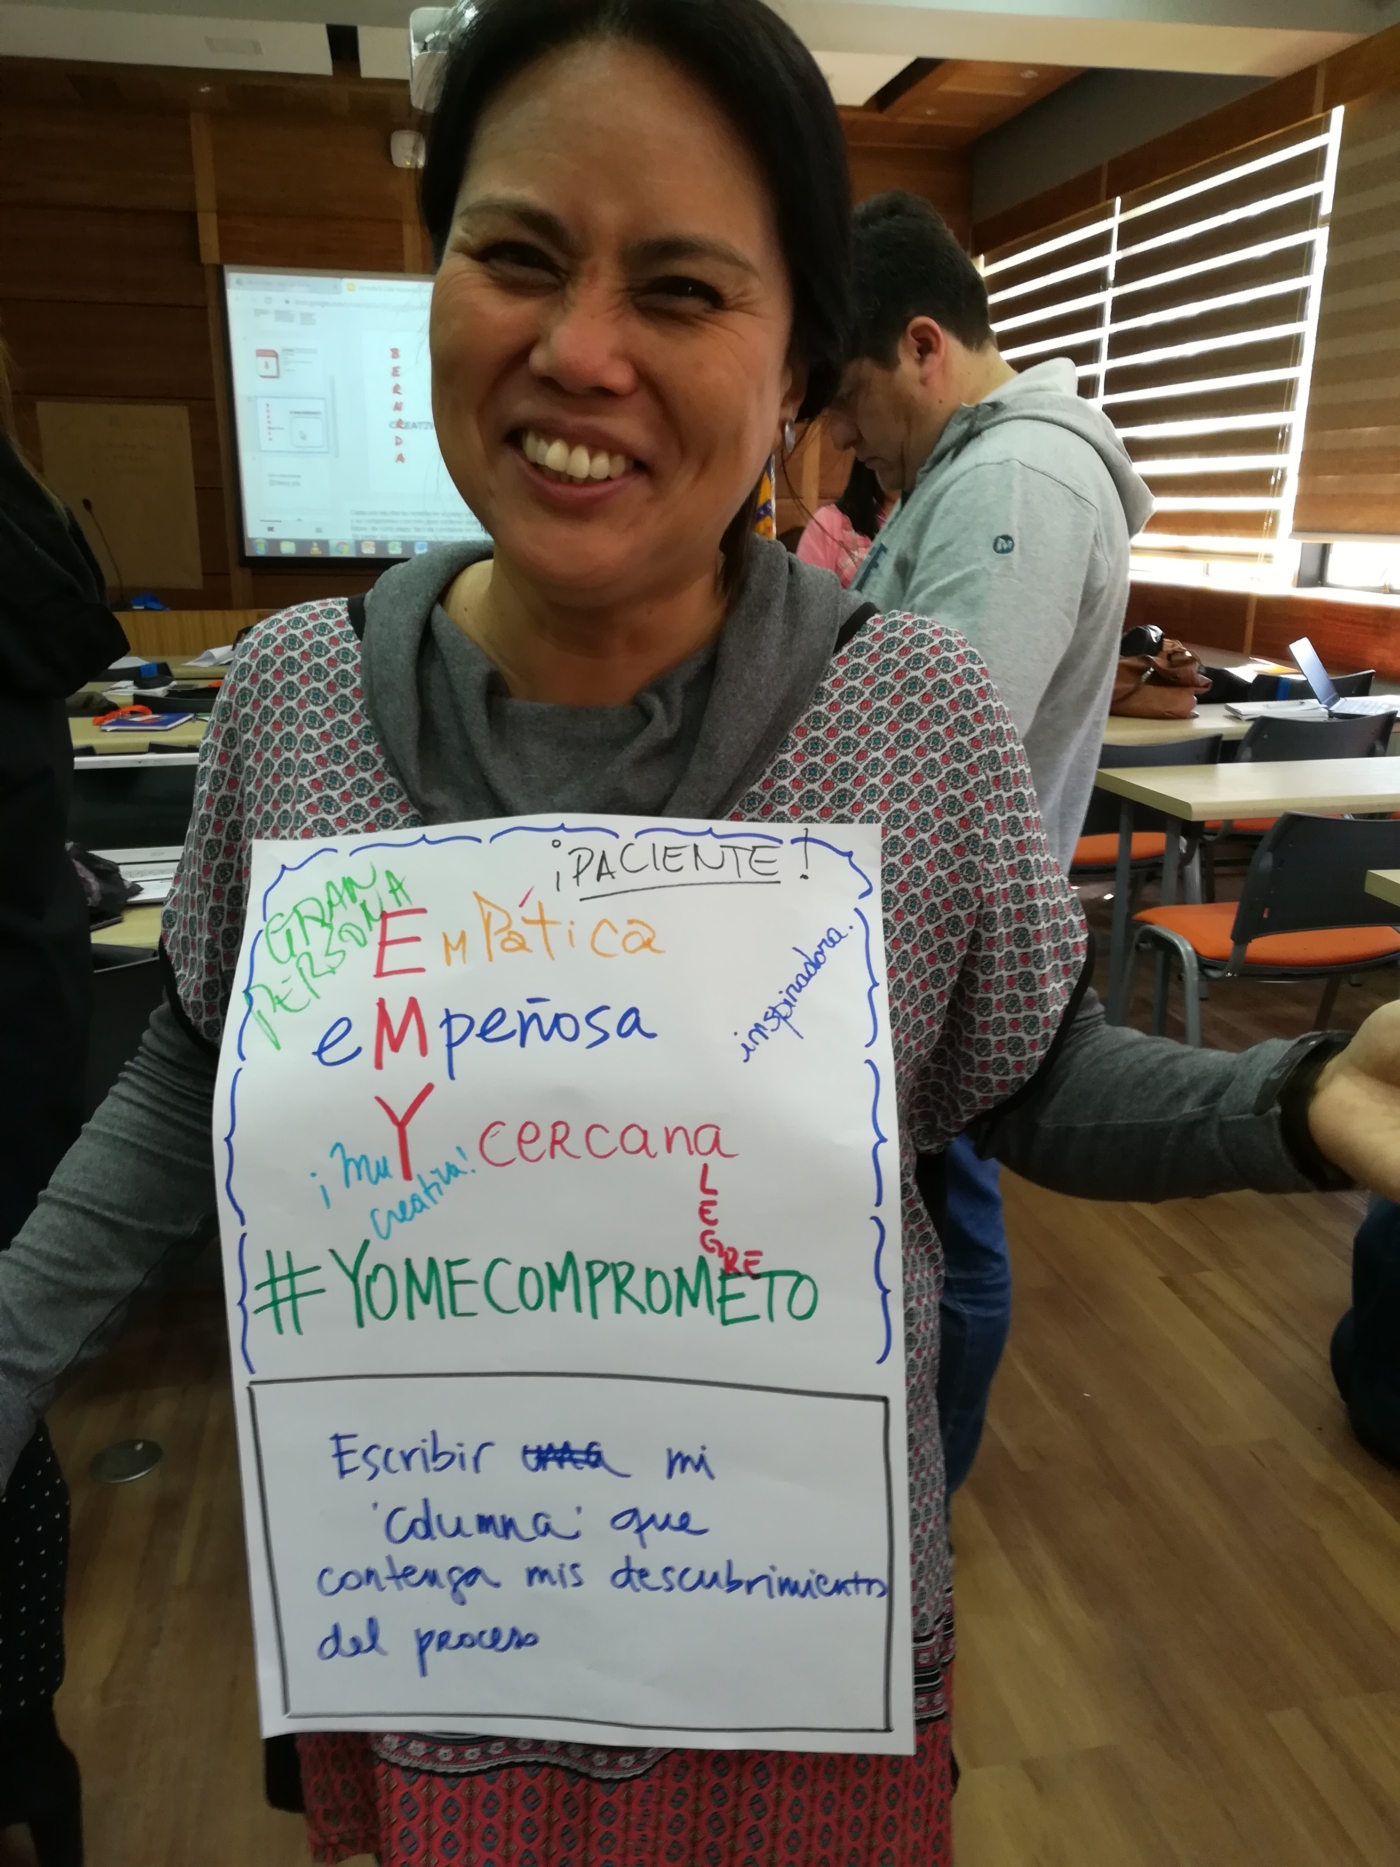 ¡PACIENTE!
GRAN
PERSONA
EMPática
inspiradora.
eMpeñosa
¡MuY CERCana
creativa!
LEGRE
#YOMECOMPROMETO
Escribir mi
'columna' que
contenga mis descubrimientos
del proceso
BERNRDA
CREATIV